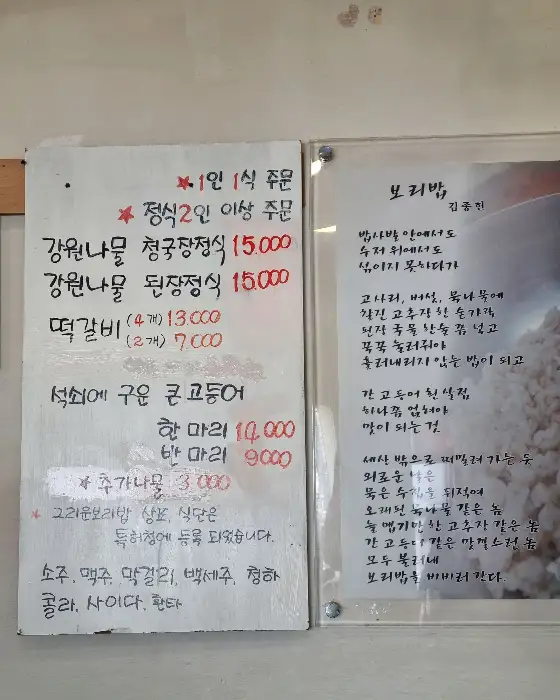 ★ 1인 1식 주문
★ 정식2인 이상 주문
강원나물 청국장정식 15.000
강원나물 된장정식 15.000
떡갈비 (4개) 13.000
(2개) 7.000
석쇠에 구운 큰고등어
한 마리 14.000
반 마리 9.000
★ 추가나물 3.000
* 그리운보리밥 상표, 식단은
특허청에 등록 되었습니다.
소주. 맥주. 막걸리. 백세주. 청하
콜라. 사이다. 환타
보리밥
김종헌
밥사발 안에서도
수저 위에서도
섞이지 못하다가
고사리, 버섯, 묵나물에
찰진 고추장 한 숟가락
된장 국물 한술 쯤 넣고
꾹꾹 눌러줘야
흘러내리지 않는 밥이 되고
간 고등어 흰 살점
하나쯤 얹혀야
맛이 되는 것
세상 밖으로 떠밀려 가는 듯
외로운 날은
묵은 수첩을 뒤적여
오래된 묵나물 같은 놈
늘 맵기만 한 고추장 같은 놈
간 고등어 같은 맛깔스런 놈
모두 불러내
보리밥을 비비러 간다.